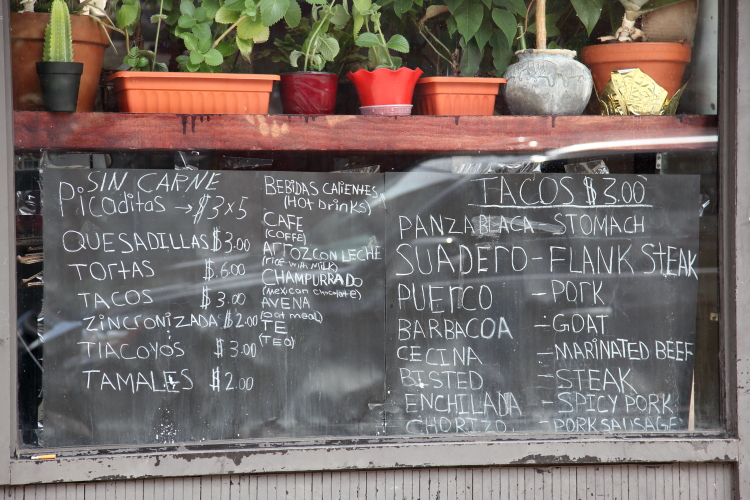 SIN CARNE
Picaditas → $3x5
QUESADILLAS $3.00
TORTAS $6.00
TACOS $3.00
ZINCRONIZADA $2.00
TLACOYOS $3.00
TAMALES $2.00
BEBIDAS CALIENTES
(HOT DRINKS)
CAFE
(COFFE)
ARROZ CON LECHE
(rice with milk)
CHAMPURRADO
(mexican chocolate)
AVENA
(oat meal)
TE
(TEA)
TACOS $3.00
PANZA BLACA - STOMACH
SUADERO - FLANK STEAK
PUERCO - PORK
BARBACOA - GOAT
CECINA - MARINATED BEEF
BISTED - STEAK
ENCHILADA - SPICY PORK
CHORIZO - PORK SAUSAGE